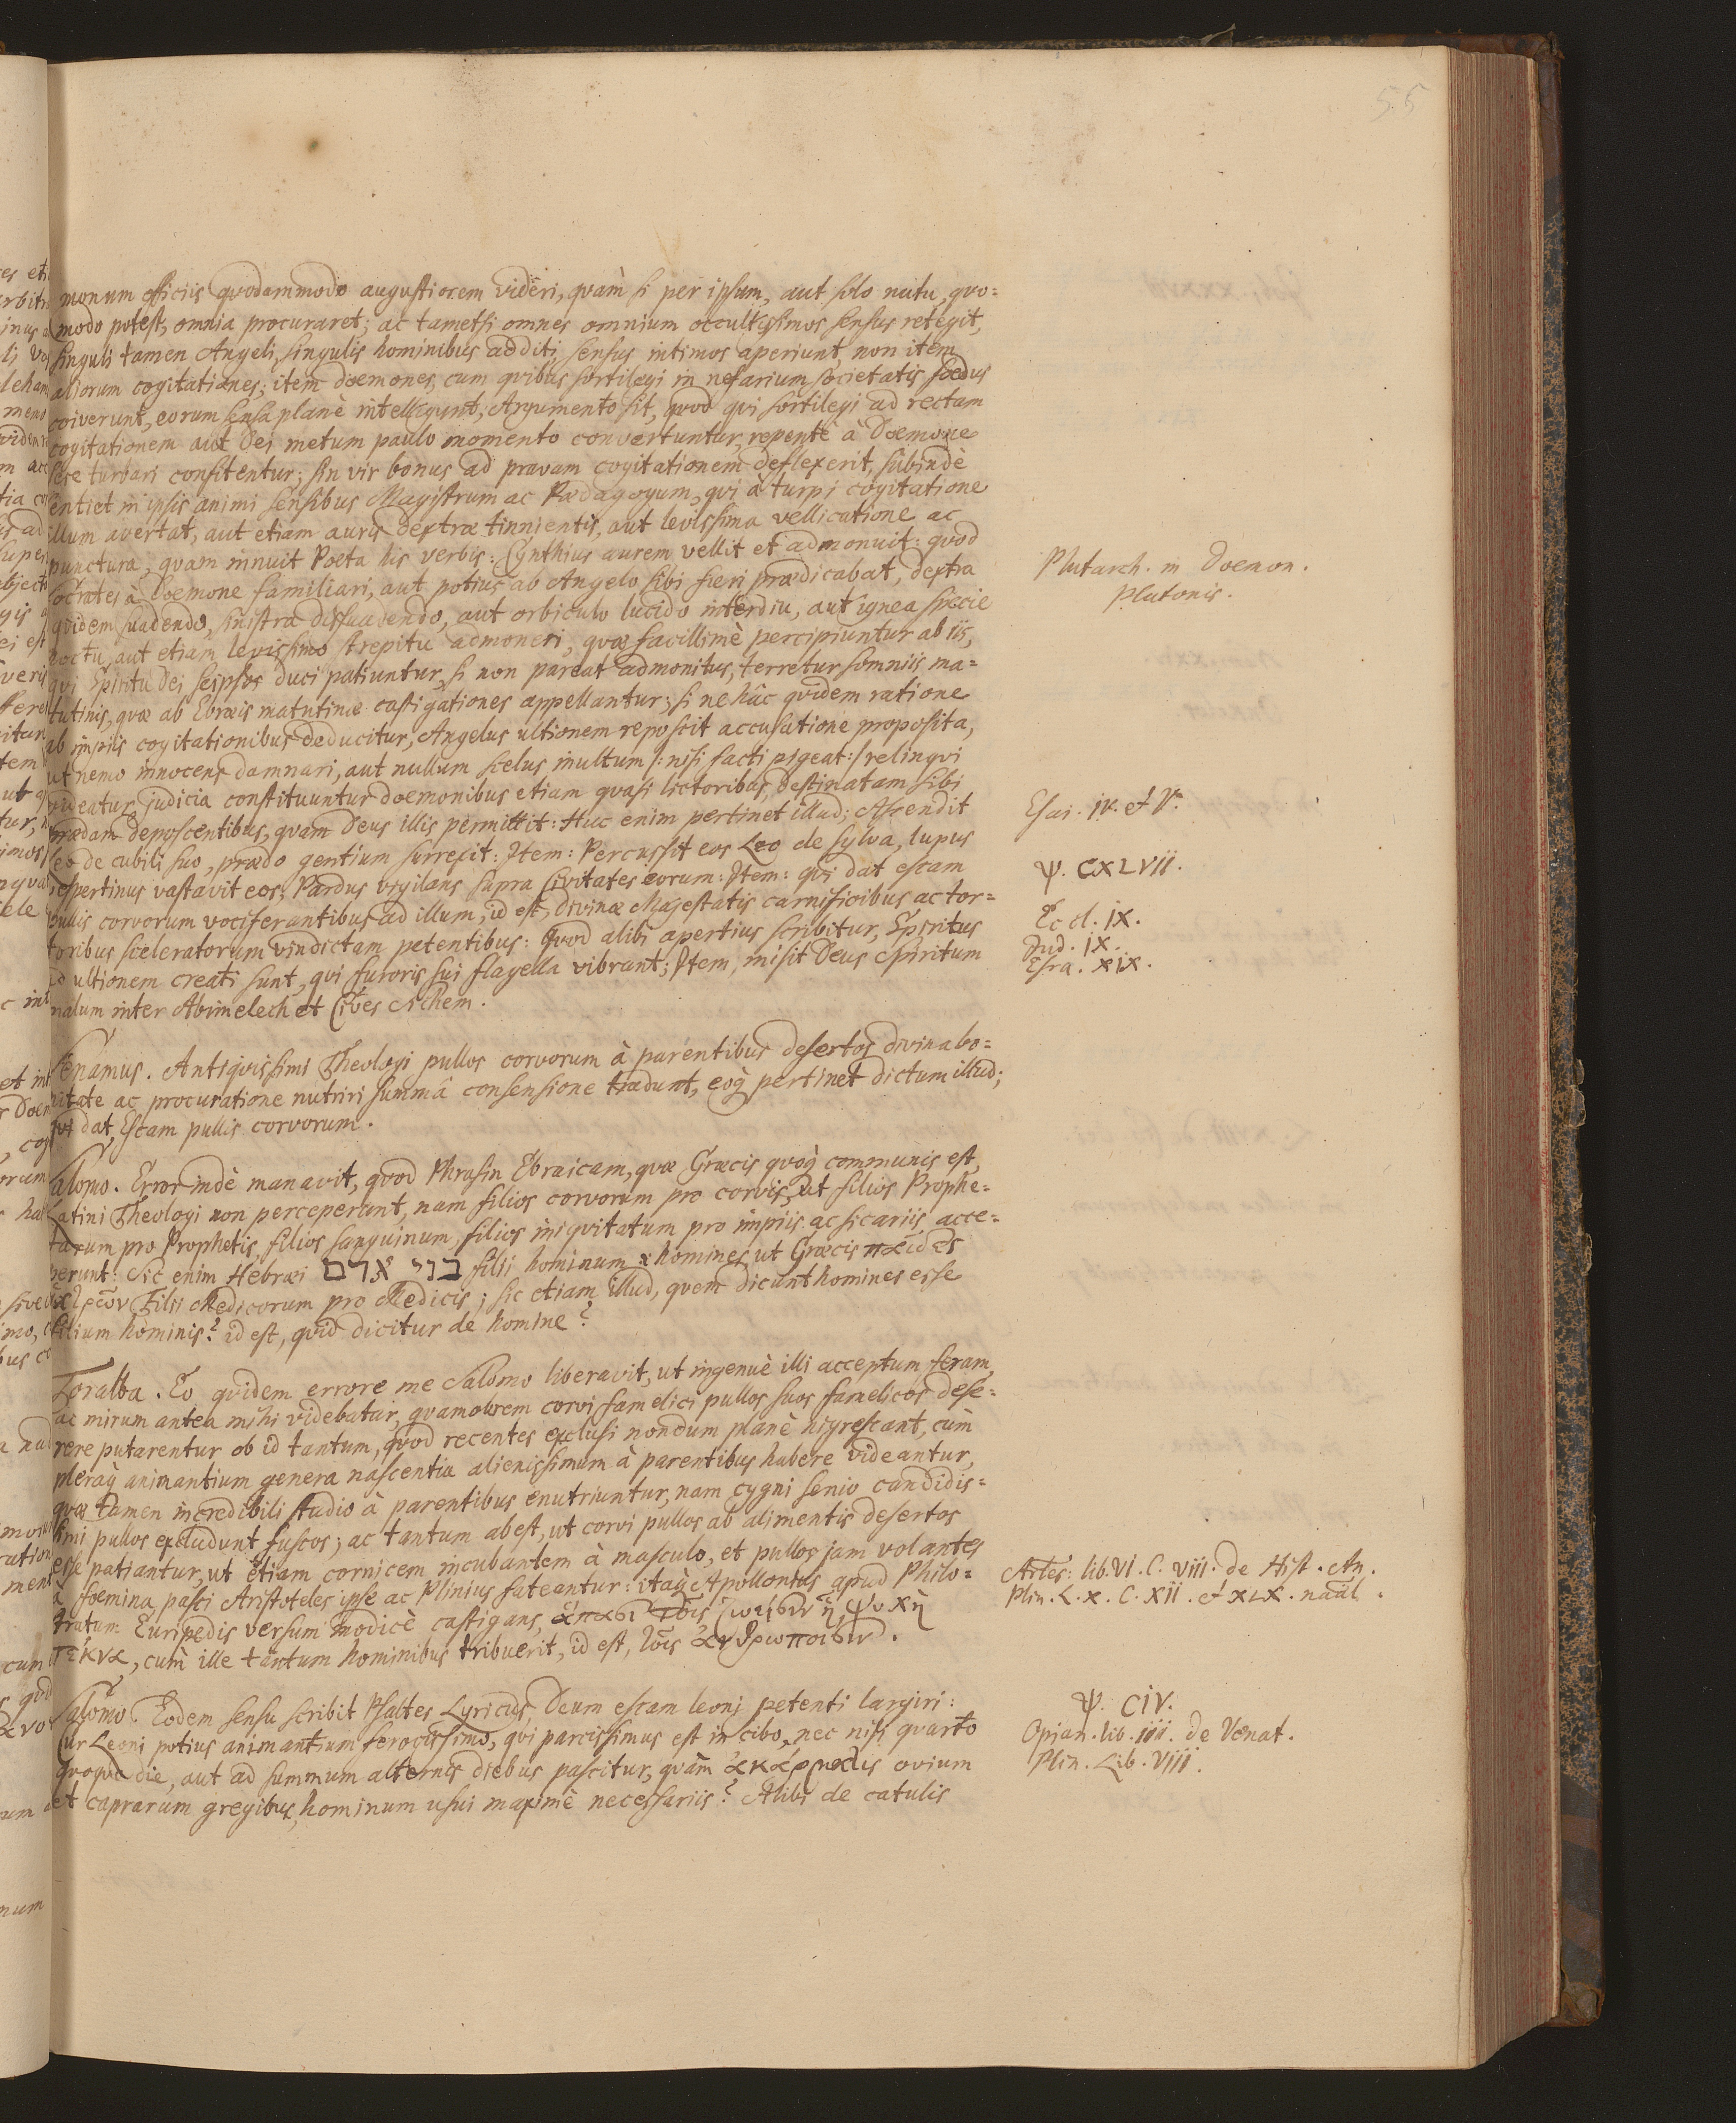 55
monum officiis quodammodo augustiorem videri, quàm si per ipsum, aut solo nutu, quo=
modo potest, omnia procuraret; ac tametsi omnes omnium occultissimos sensus retegit,
singuli tamen Angeli, singulis hominibus additi, sensus intimos aperiunt, non item
aliorum cogitationes; item doemones, cum quibus sortilegi in nefarium societatis foedus
coiverunt, eorum sensa planè intelligunt, Argumento sit, quod qui sortilegi ad rectam
cogitationem aut Dei metum paulo momento convertuntur, repentè à Doemone
sese turbari confitentur; sin vir bonus ad pravam cogitationem deflexerit, subindè
sentiet in ipsis animi sensibus Magistrum ac Paedagogum, qui à turpi cogitatione
illum avertat, aut etiam auris dextrae tinnientis, aut levissima vellicatione ac
punctura, quam innuit Poeta his verbis: Cynthius aurem vellit et admonuit: quod
Socrates à Doemone familiari, aut potius ab Angelo sibi fieri praedicabat, dextra
quidem suadendo, sinistra dissuadendo, aut orbiculo lucido interdiu, aut ignea specie
noctu, aut etiam levissimo strepitu admoneri, quae facillimè percipiuntur ab iis,
qui Spiritu Dei seipsos duci patiuntur, si non pareat admonitus, terretur somniis ma=
tutinis, quae ab Ebraeis matutinae castigationes appellantur; si ne hâc quidem ratione
ab impiis cogitationibus deducitur, Angelus ultionem reposcit accusatione proposita,
ut nemo innocens damnari, aut nullum scelus inultum /: nisi facti pigeat :/ relinqvi
videatur, judicia constituuntur doemonibus etiam quasi lictoribus, destinatam sibi
praedam deposcentibus, quam Deus illis permittit: Huc enim pertinet illud; Ascendit
Leo de cubili suo, praedo gentium surrexit: Item: Percussit eos Leo de sylva, lupus
vespertinus vastavit eos, Pardus vigilans supra Civitates eorum: Item: qui dat escam
pullis corvorum vociferantibus ad illum, id est, Divinae Majestatis carnificibus ac tor=
toribus sceleratorum vindictam petentibus: Quod alibi apertius scribitur, Spiritus
ad ultionem creati sunt, qui furoris sui flagella vibrant; Item, misit Deus Spiritum
malum inter Abimelech et Cives Sichem.
Senamus. Antiquissimi Theologi pullos corvorum à parentibus desertos divina bo=
nitate ac procuratione nutriri summâ consensione tradunt, eoq́ pertinet dictum illud;
qui dat Escam pullis corvorum.
Salomo. Error indè manavit, quod Phrasin Ebraicam, quae Graecis quoq́ communis est,
Latini Theologi non perceperunt, nam filios corvorum pro corvis, ut filios Prophe=
tarum pro Prophetis, filios sanguinum, filios iniquitatum pro impiis ac sicariis acce=
perunt: Sic enim Hebraei בני אדם filii hominum homines, ut Graecis παῖδες
Filii Medicorum pro Medicis; sic etiam illud, quem dicunt homines esse
filium hominis? id est, quid dicitur de homine?
Toralba. Eo quidem errore me Salomo liberavit, ut ingenuè illi acceptum feram,
ac mirum antea mihi videbatur, quamobrem corvi famelici pullos suos famelicos dese=
rere putarentur ob id tantum, quod recentes exclusi nondum planè nigrescant, cùm
pleraq́ animantium genera nascentia alienissimum à parentibus habere videantur,
quae tamen incredibili studio à parentibus enutriuntur, nam cygni senio candidis=
simi pullos excludunt fuscos; ac tantum abest, ut corvi pullos ab alimentis desertos
esse patiantur, ut etiam cornicem incubantem à masculo, et pullos jam volantes
à foemina pasci Aristoteles ipse ac Plinius fateantur: itaq́ Apollonius apud Philo=
tratum Euripedis versum modicè castigans, ψυχὴ
τέκνα, cùm ille tantum hominibus tribuerit, id est, ἀνθρώποισιν.
Salomo. Eodem sensu scribit Psaltes Lyricus, Deum escam leoni petenti largiri:
Cur Leoni potius animantium ferocissimo, qui parcissimus est in cibo, nec nisi quarto
quoque die, aut ad summum alternis diebus pascitur, quàm ovium
et caprarum gregibus, hominum usui maximè necessariis? Alibi de catulis
Plutarch. in Doemon.
Plutonis.
Esai. iv. et V.
Ψ. CXLVII.
Eccl. IX.
Jud. IX.
Esra. XIX.
Artes: lib. VI. C. VIII. de Hist. An.
Plin. L. X. C. XII. et XLX. naal.
Ψ. CIV.
Opian. lib. IIII. de Venat.
Plin. Lib. VIII.